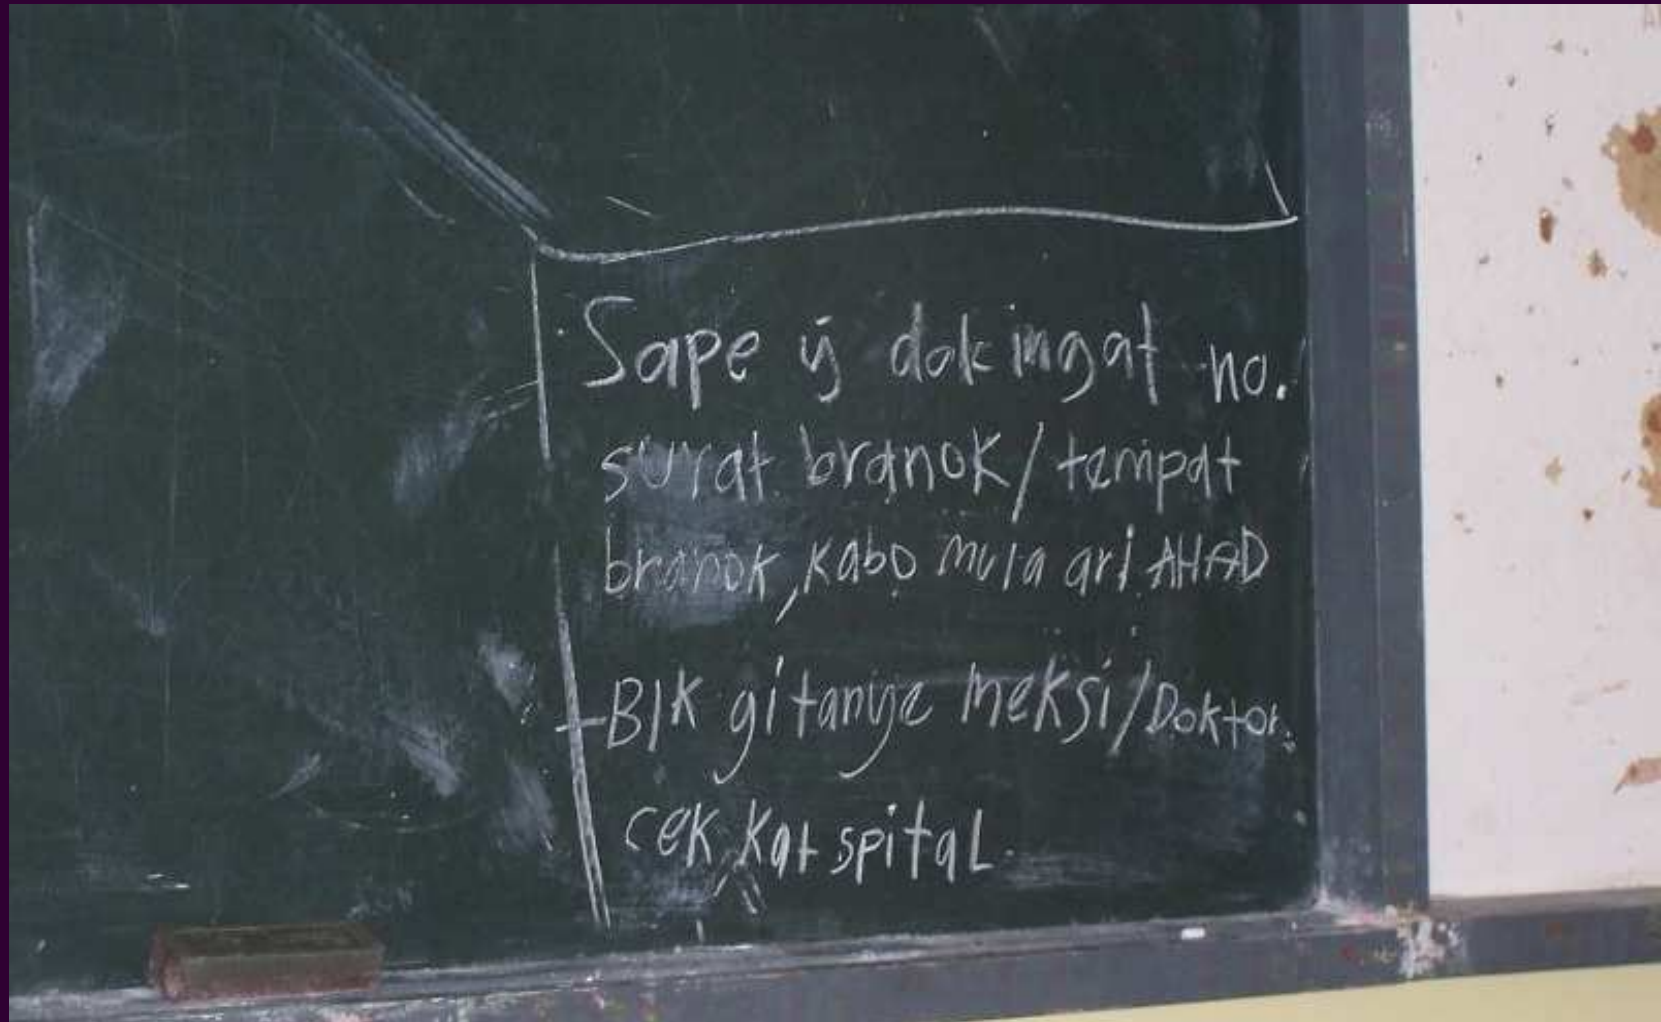 Sape yg dok ingat no.
surat branok/tempat
branok, kabo mula ari AHAD
-Blk gi tanye meksi/Doktor.
cek kat spital